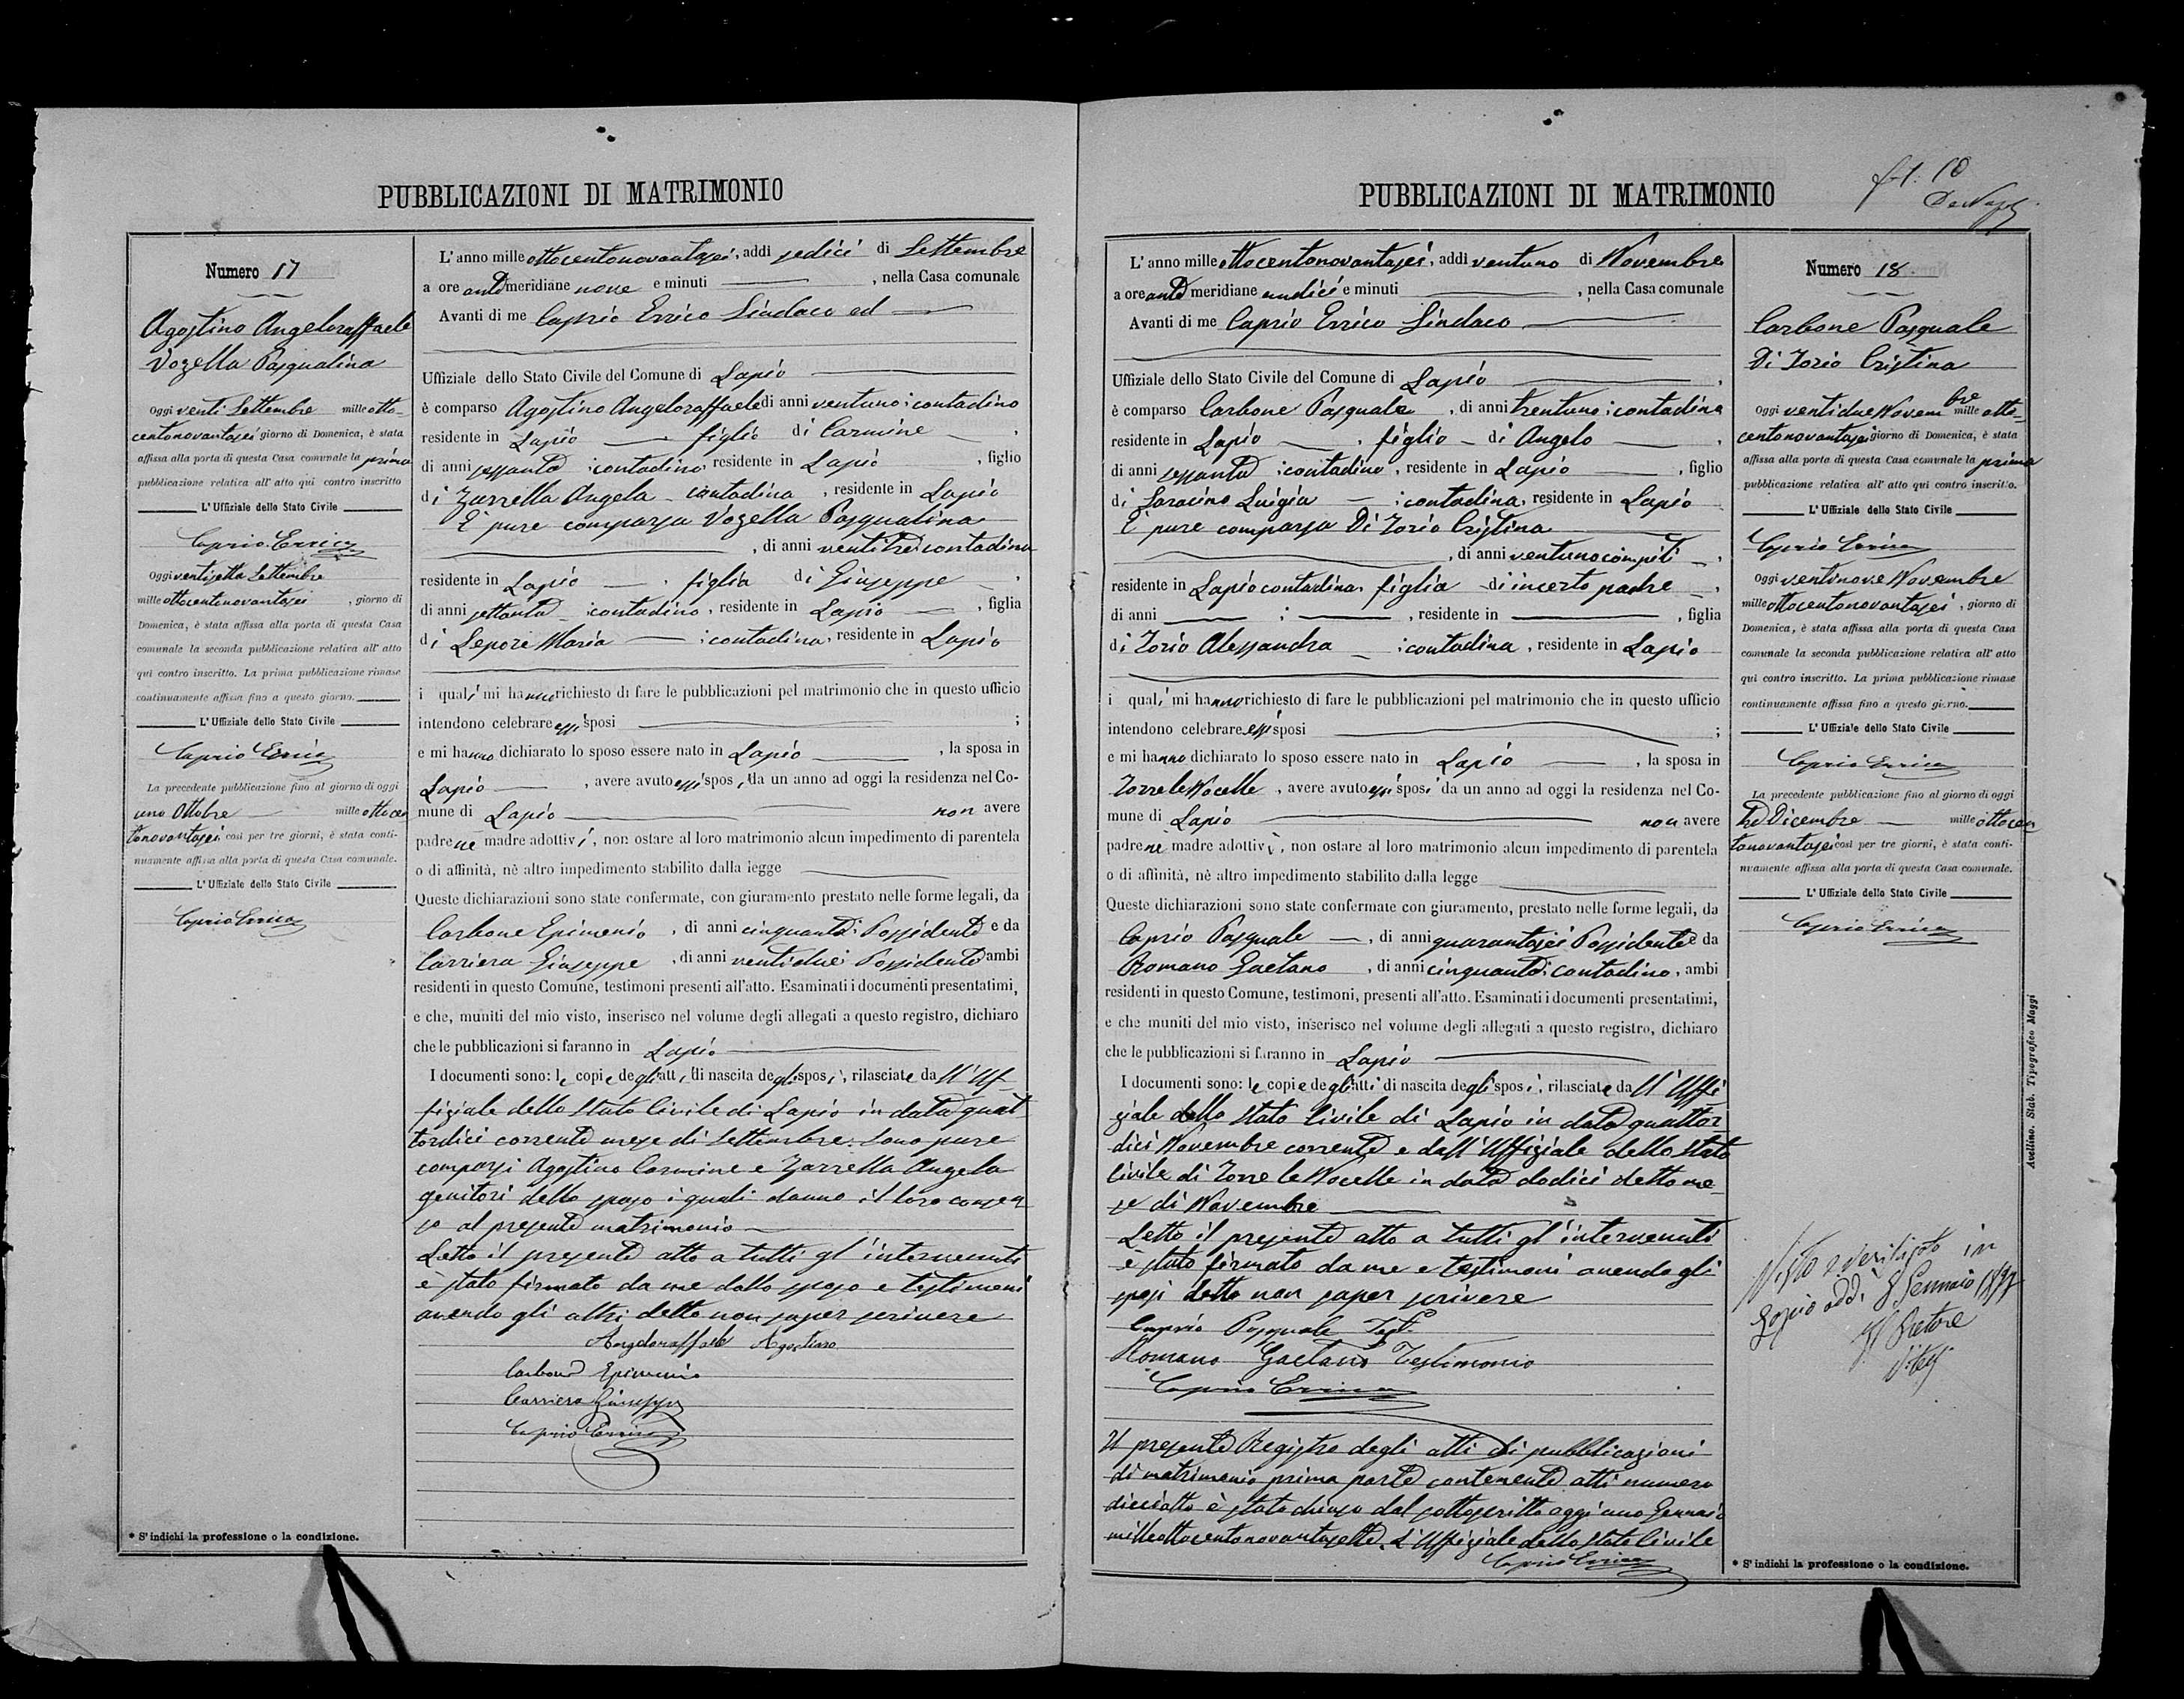 PUBBLICAZIONI DI MATRIMONIO
Numero 17
Agostino Angeloraffaele
Vozella Pasqualina
Oggi venti Settembre mille otto-
centonovantasei giorno di Domenica, è stata
affissa alla porta di questa Casa comunale la prima
pubblicazione relativa all' atto qui contro inscritto
L' Uffiziale dello Stato Civile
Caprio Errico
Oggi ventisette Settembre
mille ottocentonovantasei, giorno di
Domenica, è stata affissa alla porta di questa Casa
comunale la seconda pubblicazione relativa all' atto
qui contro inscritto. La prima pubblicazione rimase
continuamente affissa fino a questo giorno.
L' Uffiziale dello Stato Civile
Caprio Errico
La precedente pubblicazione fino al giorno di oggi
uno Ottobre mille ottocen
tonovantasei così per tre giorni, è stata conti-
nuamente affissa alla porta di questa Casa comunale.
L' Uffiziale dello Stato Civile
Caprio Errico
* S' indichi la professione o la condizione.
L' anno mille ottocentonovantasei, addì sedici di Settembre
a ore anti meridiane nove e minuti , nella Casa comunale
Avanti di me Caprio Errico Sindaco ed
Uffiziale dello Stato Civile del Comune di Lapio
è comparso Agostino Angeloraffaele di anni ventuno; contadino
residente in Lapio , figlio di Carmine ,
di anni sessanta; contadino, residente in Lapio , figlio
di Zarrella Angela - contadina , residente in Lapio
E' pure comparsa Vozella Pasqualina
, di anni ventitre contadina
residente in Lapio , figlia di Giuseppe ,
di anni settanta; contadino, residente in Lapio , figlia
di Lepore Maria ; contadina, residente in Lapio
i quali mi hanno richiesto di fare le pubblicazioni pel matrimonio che in questo ufficio
intendono celebrare essi sposi ;
e mi hanno dichiarato lo sposo essere nato in Lapio , la sposa in
Lapio , avere avuto essi sposi, da un anno ad oggi la residenza nel Co-
mune di Lapio non avere
padre nè madre adottivi, non ostare al loro matrimonio alcun impedimento di parentela
o di affinità, nè altro impedimento stabilito dalla legge
Queste dichiarazioni sono state confermate, con giuramento prestato nelle forme legali, da
Carbone Epimenio , di anni cinquanta; Possidente e da
Carriera Giuseppe , di anni ventidue; Possidente ambi
residenti in questo Comune, testimoni presenti all'atto. Esaminati i documenti presentatimi,
e che, muniti del mio visto, inserisco nel volume degli allegati a questo registro, dichiaro
che le pubblicazioni si faranno in Lapio
I documenti sono: le copie degli atti di nascita degli sposi, rilasciate dall' Uf-
fiziale dello Stato Civile di Lapio in data quat
tordici corrente mese di Settembre. Sono pure
comparsi Agostino Carmine e Zarrella Angela
genitori dello sposo i quali danno il loro consen
so al presente matrimonio
Letto il presente atto a tutti gl' intervenuti
è stato firmato da me dallo sposo e testimoni
avendo gli altri detto non saper scrivere
Angeloraffaele Agostino
Carbone Epimenio
Carriera Giuseppe
Caprio Errico
PUBBLICAZIONI DI MATRIMONIO
L' anno mille ottocentonovantasei, addì ventuno di Novembre
a ore anti meridiane undici e minuti , nella Casa comunale
Avanti di me Caprio Errico Sindaco
Uffiziale dello Stato Civile del Comune di Lapio ,
è comparso Carbone Pasquale , di anni trentuno; contadino
residente in Lapio , figlio di Angelo ,
di anni sessanta; contadino, residente in Lapio , figlio
di Saracino Luigia ; contadina, residente in Lapio
E' pure comparsa Di Iorio Cristina
, di anni ventuno compiti ,
residente in Lapio contadina, figlia di incerto padre ,
di anni ; , residente in , figlia
di Iorio Alessandra ; contadina, residente in Lapio
i quali mi hanno richiesto di fare le pubblicazioni pel matrimonio che in questo ufficio
intendono celebrare essi sposi ;
e mi hanno dichiarato lo sposo essere nato in Lapio , la sposa in
Torre le Nocelle , avere avuto essi sposi da un anno ad oggi la residenza nel Co-
mune di Lapio non avere
padre nè madre adottivi, non ostare al loro matrimonio alcun impedimento di parentela
o di affinità, nè altro impedimento stabilito dalla legge
Queste dichiarazioni sono state confermate con giuramento, prestato nelle forme legali, da
Caprio Pasquale , di anni quarantasei Possidente e da
Romano Gaetano , di anni cinquanta; contadino, ambi
residenti in questo Comune, testimoni, presenti all'atto. Esaminati i documenti presentatimi,
e che muniti del mio visto, inserisco nel volume degli allegati a questo registro, dichiaro
che le pubblicazioni si faranno in Lapio
I documenti sono: le copie degli atti di nascita degli sposi, rilasciate dall' Uffi
ziale dello Stato Civile di Lapio in data quattor
dici Novembre corrente e dall' Uffiziale dello Stato
Civile di Torre le Nocelle in data dodici detto me
se di Novembre
Letto il presente atto a tutti gl' intervenuti
è stato firmato da me e testimoni avendo gli
sposi detto non saper scrivere
Caprio Pasquale Test.
Romano Gaetano Testimonio
Caprio Errico
Il presente Registro degli atti di pubblicazioni
di matrimonio prima parte contenente atti numero
dieciotto è stato chiuso dal sottoscritto oggi uno Gennaio
milleottocentonovantasette. L' Uffiziale dello Stato Civile
Caprio Errico
Numero 18
Carbone Pasquale
Di Iorio Cristina
Oggi ventidue Novembre mille otto-
centonovantasei giorno di Domenica, è stata
affissa alla porta di questa Casa comunale la prima
pubblicazione relativa all' atto qui contro inscritto.
L' Uffiziale dello Stato Civile
Caprio Errico
Oggi ventinove Novembre
mille ottocentonovantasei, giorno di
Domenica, è stata affissa alla porta di questa Casa
comunale la seconda pubblicazione relativa all' atto
qui contro inscritto. La prima pubblicazione rimase
continuamente affissa fino a questo giorno.
L' Uffiziale dello Stato Civile
Caprio Errico
La precedente pubblicazione fino al giorno di oggi
tre Dicembre mille ottocen
tonovantasei così per tre giorni, è stata conti-
nuamente affissa alla porta di questa Casa comunale.
L' Uffiziale dello Stato Civile
Caprio Errico
Visto e verificato in
addì 8 Gennaio 1897
Il Pretore
* S' indichi la professione o la condizione.
Avellino. Stab. Tipografico Maggi